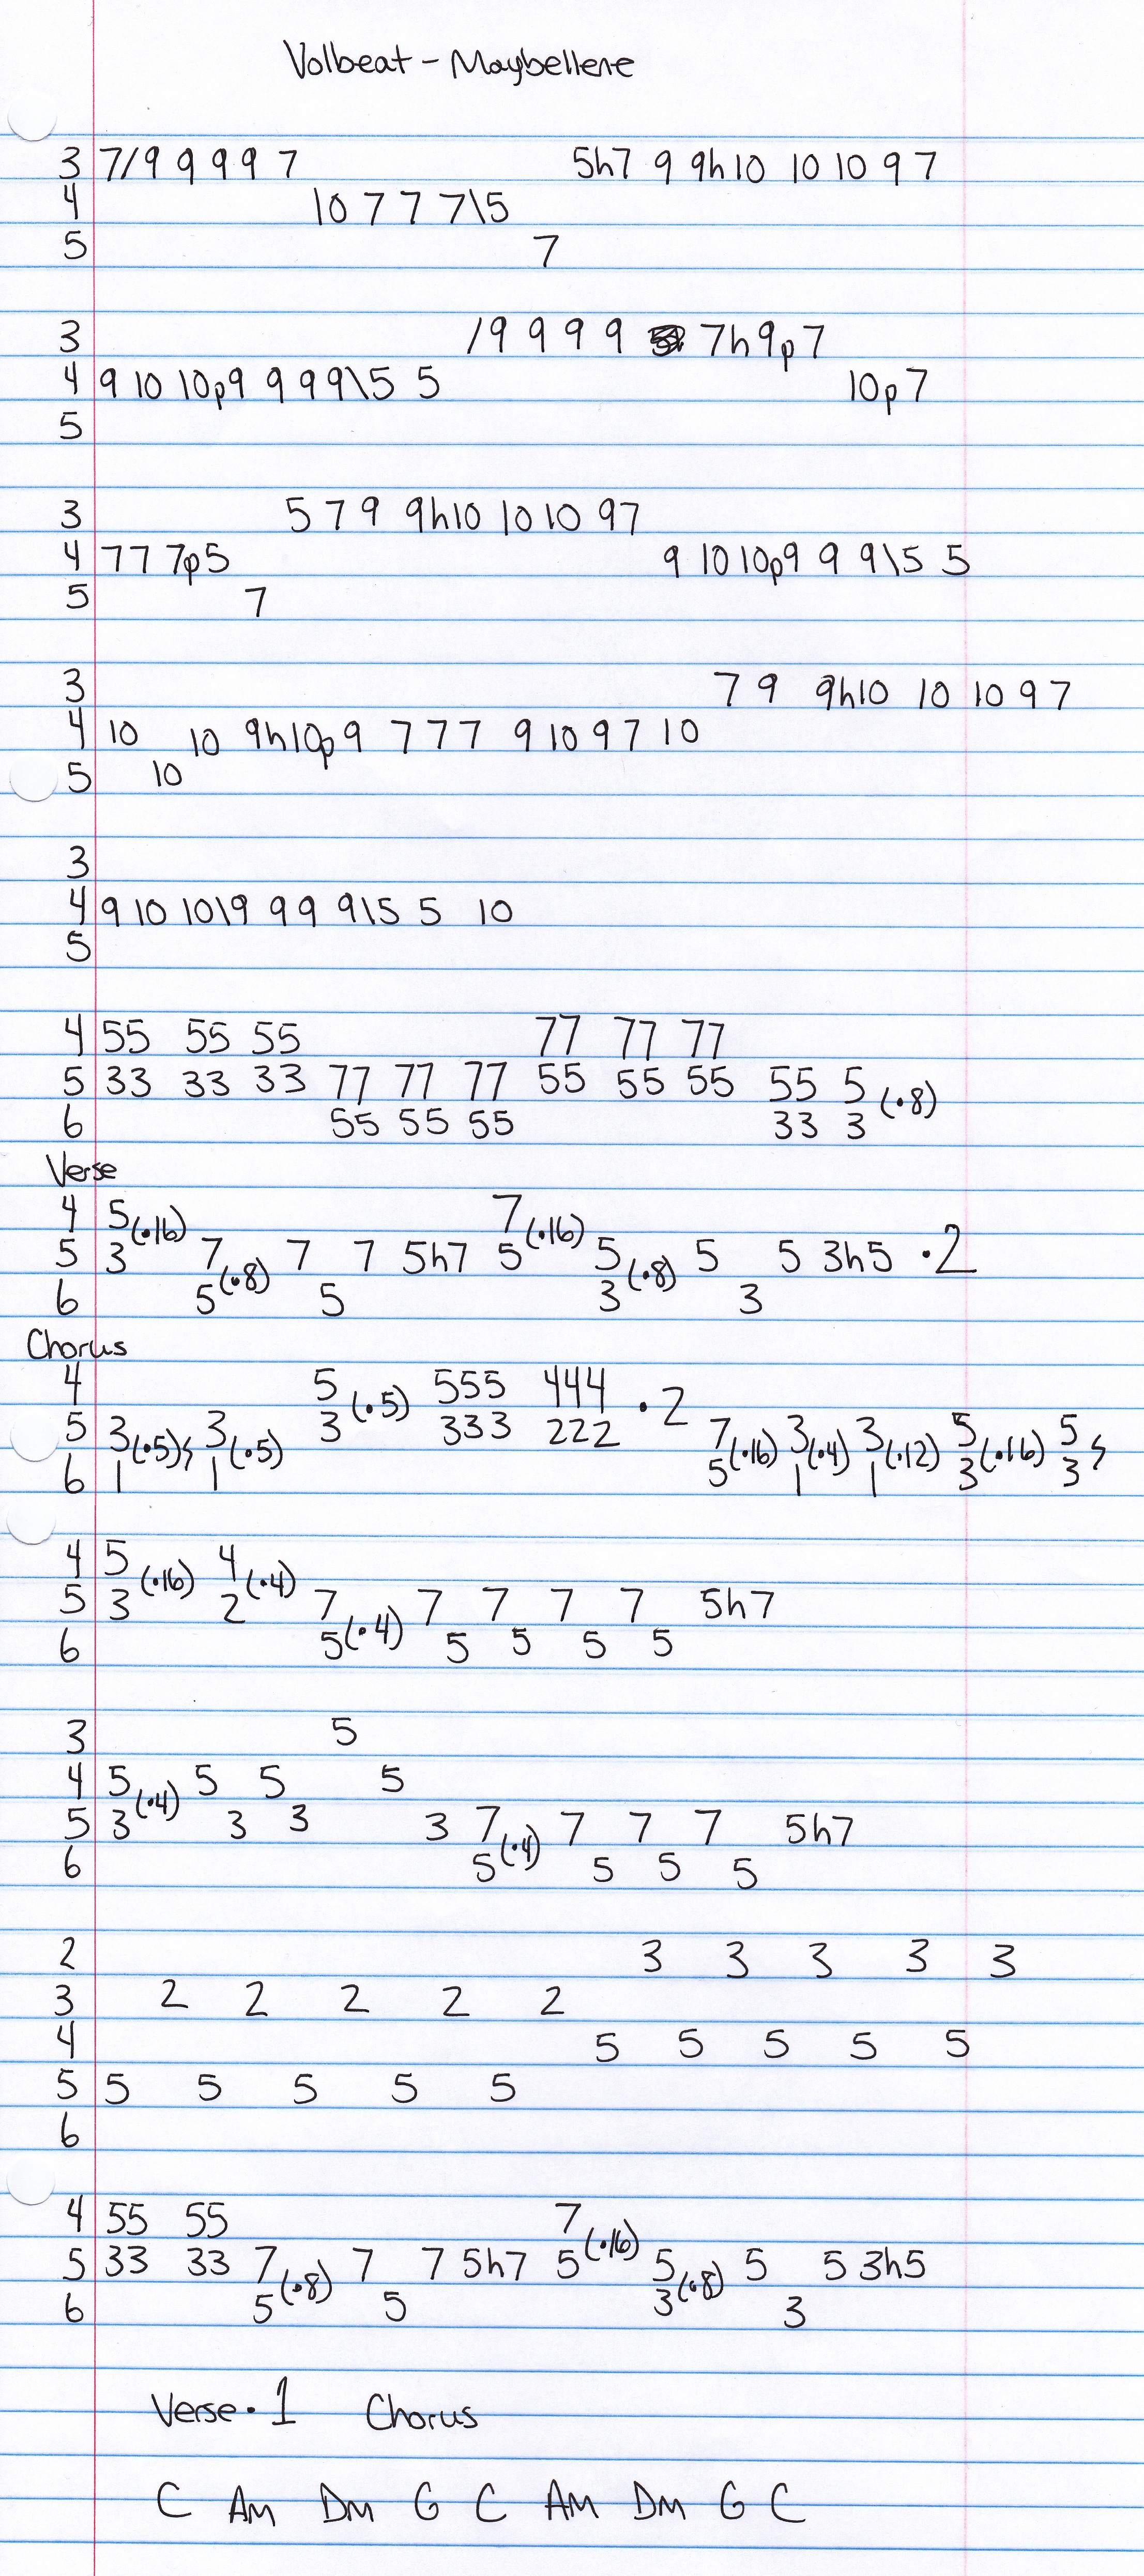 Volbeat - Maybellene
3 7/9 9 9 9 7 5h7 9 9h10 10 10 9 7
4 10 7 7 7\5
5 7
3 /9 9 9 9 7h9p7
4 9 10 10p9 9 9 9\5 5 10p7
5
3 5 7 9 9h10 10 10 9 7
4 7 7 7p5 9 10 10p9 9 9\5 5
5 7
3 7 9 9h10 10 10 9 7
4 10 10 9h10p9 7 7 7 9 10 9 7 10
5 10
3
4 9 10 10\9 9 9 9\5 5 10
5
4 55 55 55 77 77 77
5 33 33 33 77 77 77 55 55 55 55 5 (·8)
6 55 55 55 33 3
Verse
4 5 (·16) 7 (·16)
5 3 7 (·8) 7 7 5h7 5 5 (·8) 5 5 3h5 ·2
6 5 5 3 3
Chorus
4 5 (·5) 555 444 ·2
5 3 (·5) 3 (·5) 3 333 222 7 (·16) 3 (·4) 3 (·12) 5 (·16) 5
6 1 1 5 1 1 3 3
4 5 (·16) 4 (·4)
5 3 2 7 (·4) 7 7 7 7 5h7
6 5 5 5 5 5
3 5
4 5 (·4) 5 5 5
5 3 3 3 3 7 (·4) 7 7 7 5h7
6 5 5 5 5
2 3 3 3 3 3
3 2 2 2 2 2
4 5 5 5 5 5
5 5 5 5 5 5
6
4 55 55 7 (·16)
5 33 33 7 (·8) 7 7 5h7 5 5 (·8) 5 5 3h5
6 5 5 3 3
Verse · 1 Chorus
C Am Dm G C Am Dm G C